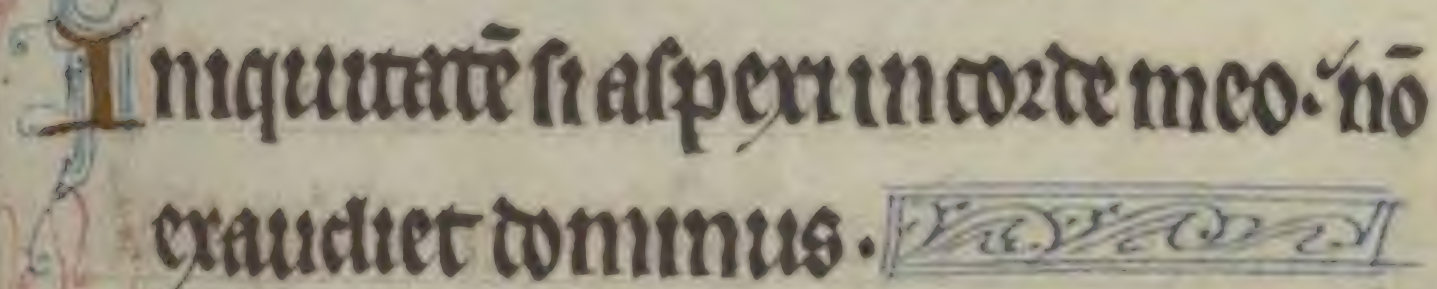 Iniquitatē si aspexi in corde meo. nō
exaudiet dominus.